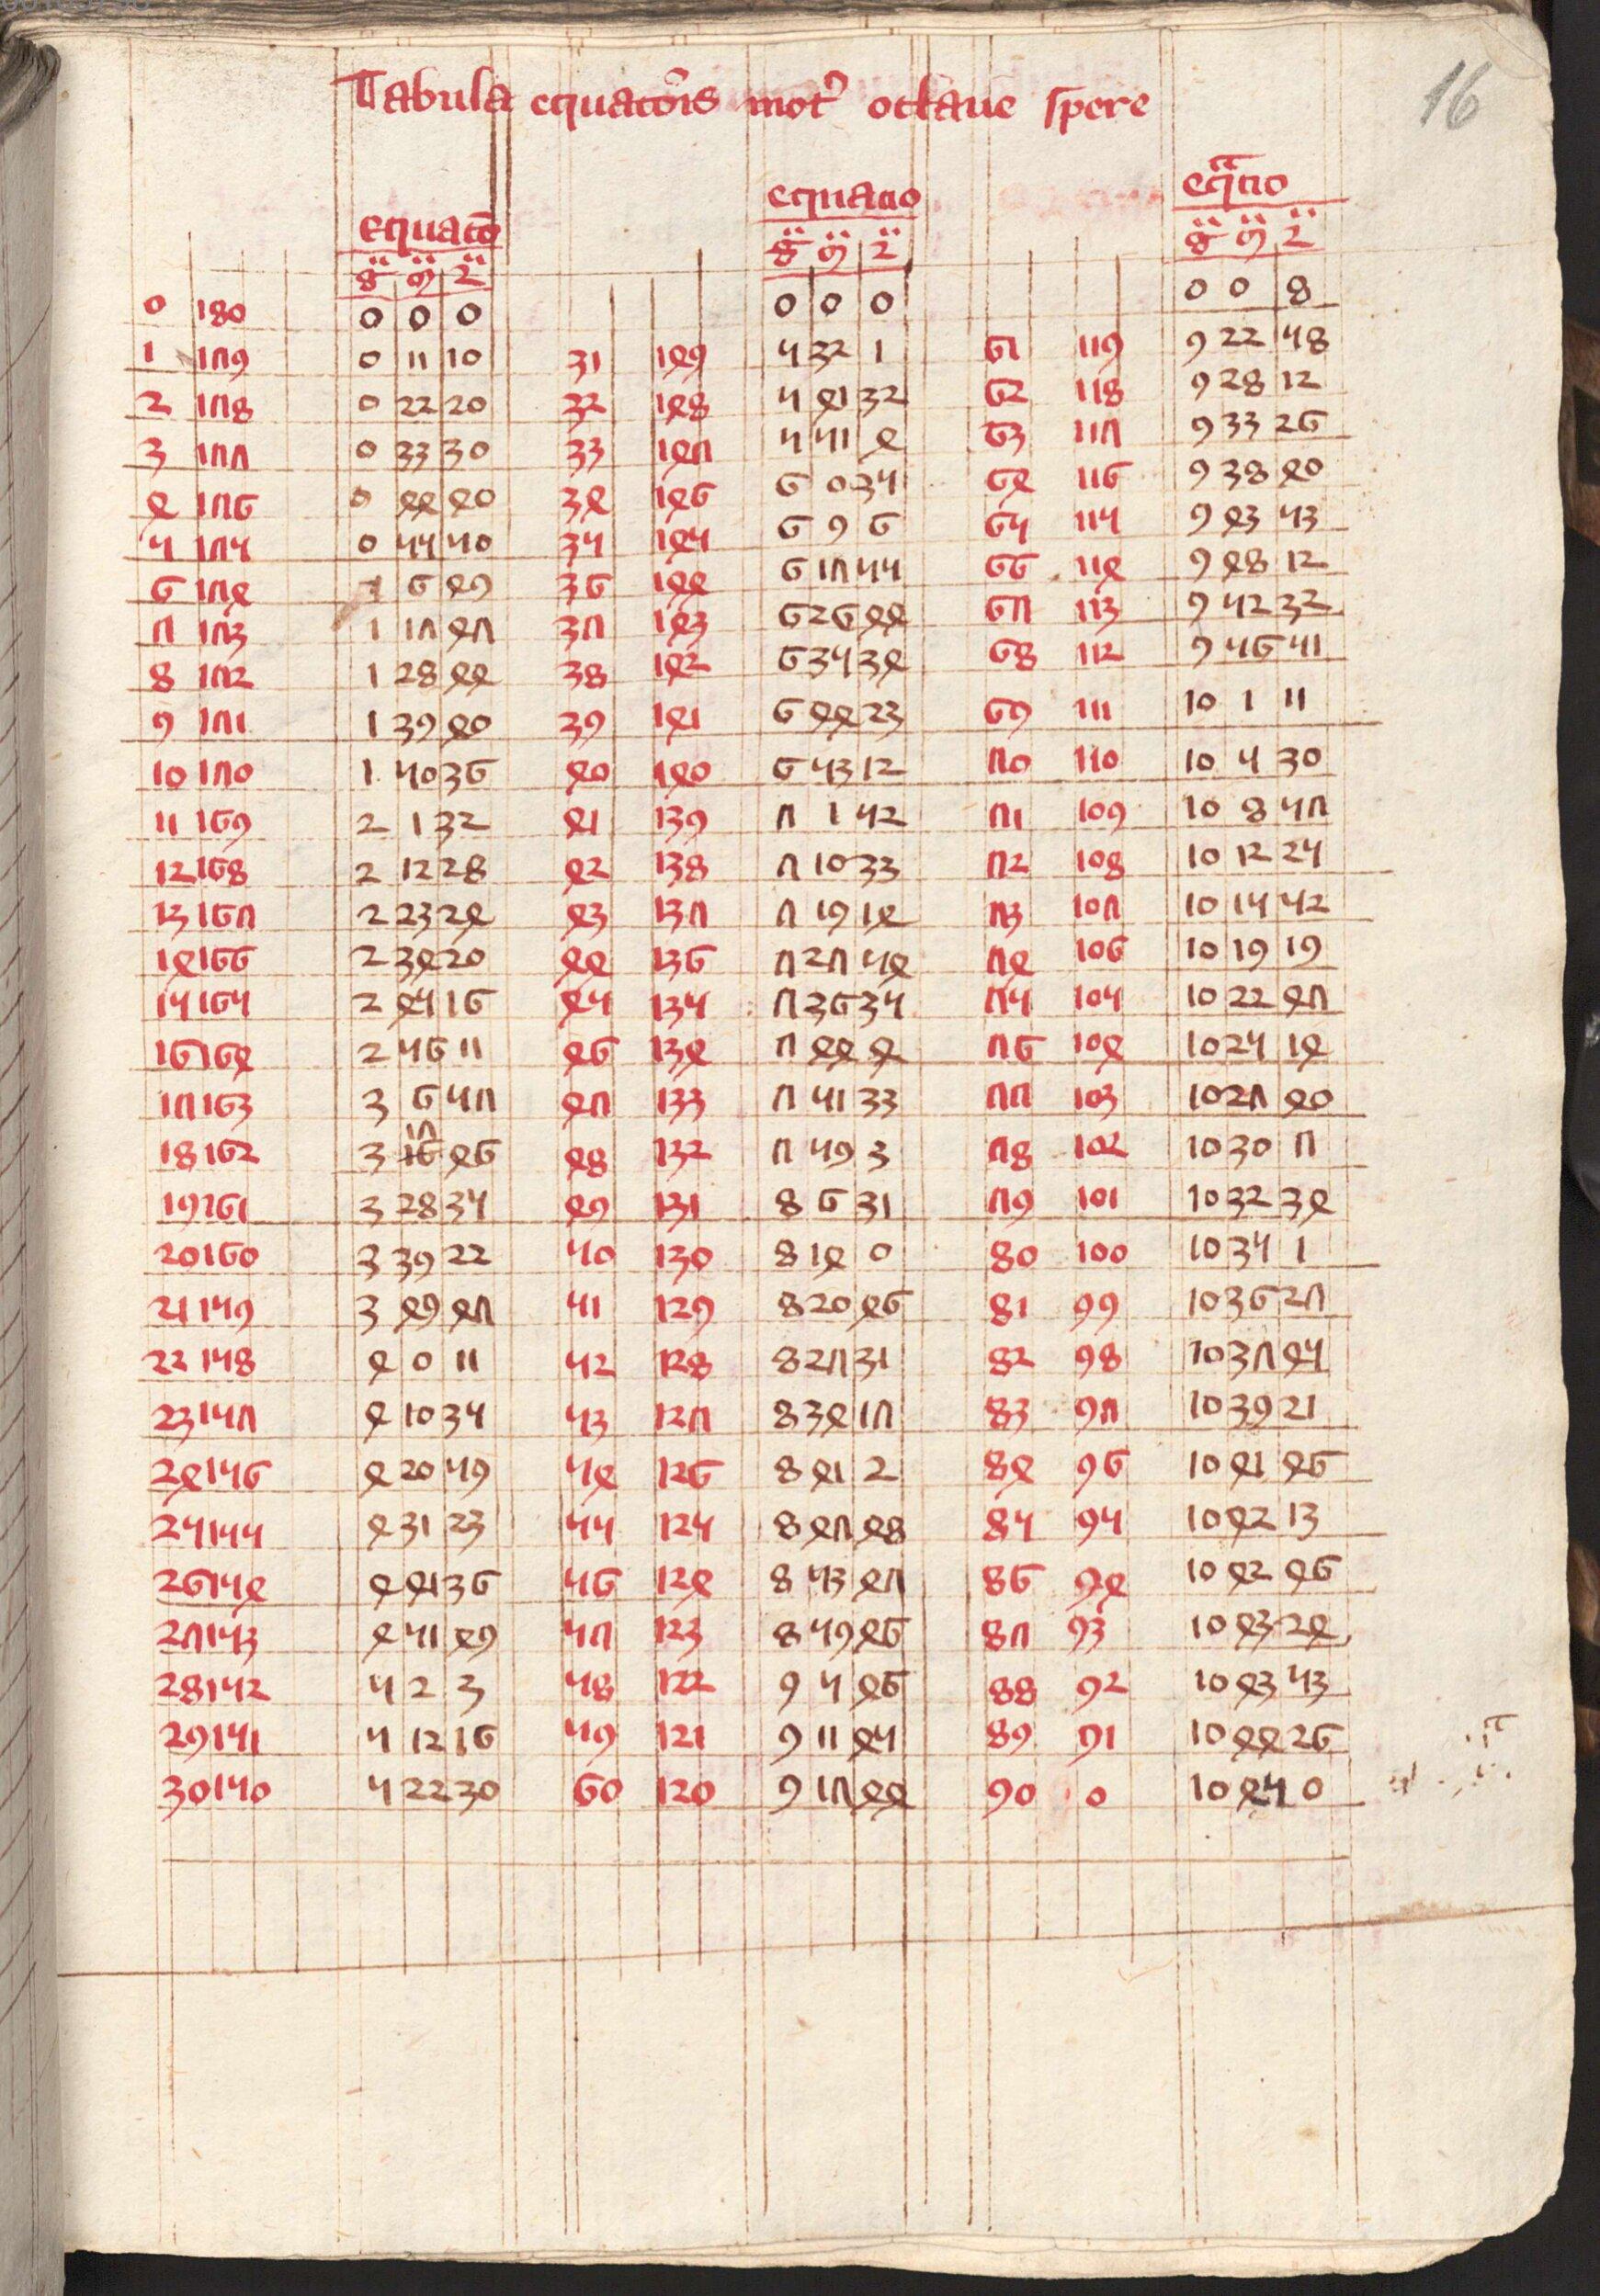 16
Tabula equatōis mot⁹ octaue spere
equatō equatio eq̄tio
g̈ m̈ 2̈ g̈ m̈ 2̈ g̈ m̈ 2̈
0 180 0 0 0 0 0 0 0 0 8
1 179 0 11 10 31 149 5 32 1 61 119 9 22 58
2 178 0 22 20 32 148 5 41 32 62 118 9 28 12
3 177 0 33 30 33 147 5 51 4 63 117 9 33 26
4 176 0 44 40 34 146 6 0 35 64 116 9 38 40
5 175 0 55 50 35 145 6 9 6 65 115 9 43 53
6 174 1 6 49 36 144 6 17 55 66 114 9 48 12
7 173 1 17 47 37 143 6 26 44 67 113 9 52 32
8 172 1 28 44 38 142 6 35 34 68 112 9 56 51
9 171 1 39 40 39 141 6 44 23 69 111 10 1 11
10 170 1 50 36 40 140 6 53 12 70 110 10 5 30
11 169 2 1 32 41 139 7 1 52 71 109 10 8 57
12 168 2 12 28 42 138 7 10 33 72 108 10 12 25
13 167 2 23 24 43 137 7 19 14 73 107 10 15 52
14 166 2 34 20 44 136 7 27 54 74 106 10 19 19
15 165 2 45 16 45 135 7 36 35 75 105 10 22 47
16 164 2 56 11 46 134 7 44 4 76 104 10 25 14
17 163 3 6 57 47 133 7 51 33 77 103 10 27 40
18 162 3 17 46 48 132 7 59 3 78 102 10 30 7
19 161 3 28 35 49 131 8 6 31 79 101 10 32 34
20 160 3 39 22 50 130 8 14 0 80 100 10 35 1
21 159 3 49 47 51 129 8 20 46 81 99 10 36 27
22 158 4 0 11 52 128 8 27 31 82 98 10 37 45
23 157 4 10 35 53 127 8 34 17 83 97 10 39 21
24 156 4 20 59 54 126 8 41 2 84 96 10 41 46
25 155 4 31 23 55 125 8 47 48 85 95 10 42 13
26 154 4 41 36 56 124 8 53 47 86 94 10 42 46
27 153 4 51 49 57 123 8 59 46 87 93 10 43 24
28 152 5 2 3 58 122 9 5 46 88 92 10 43 53
29 151 5 12 16 59 121 9 11 45 89 91 10 44 26
30 150 5 22 30 60 120 9 17 44 90 0 10 45 0